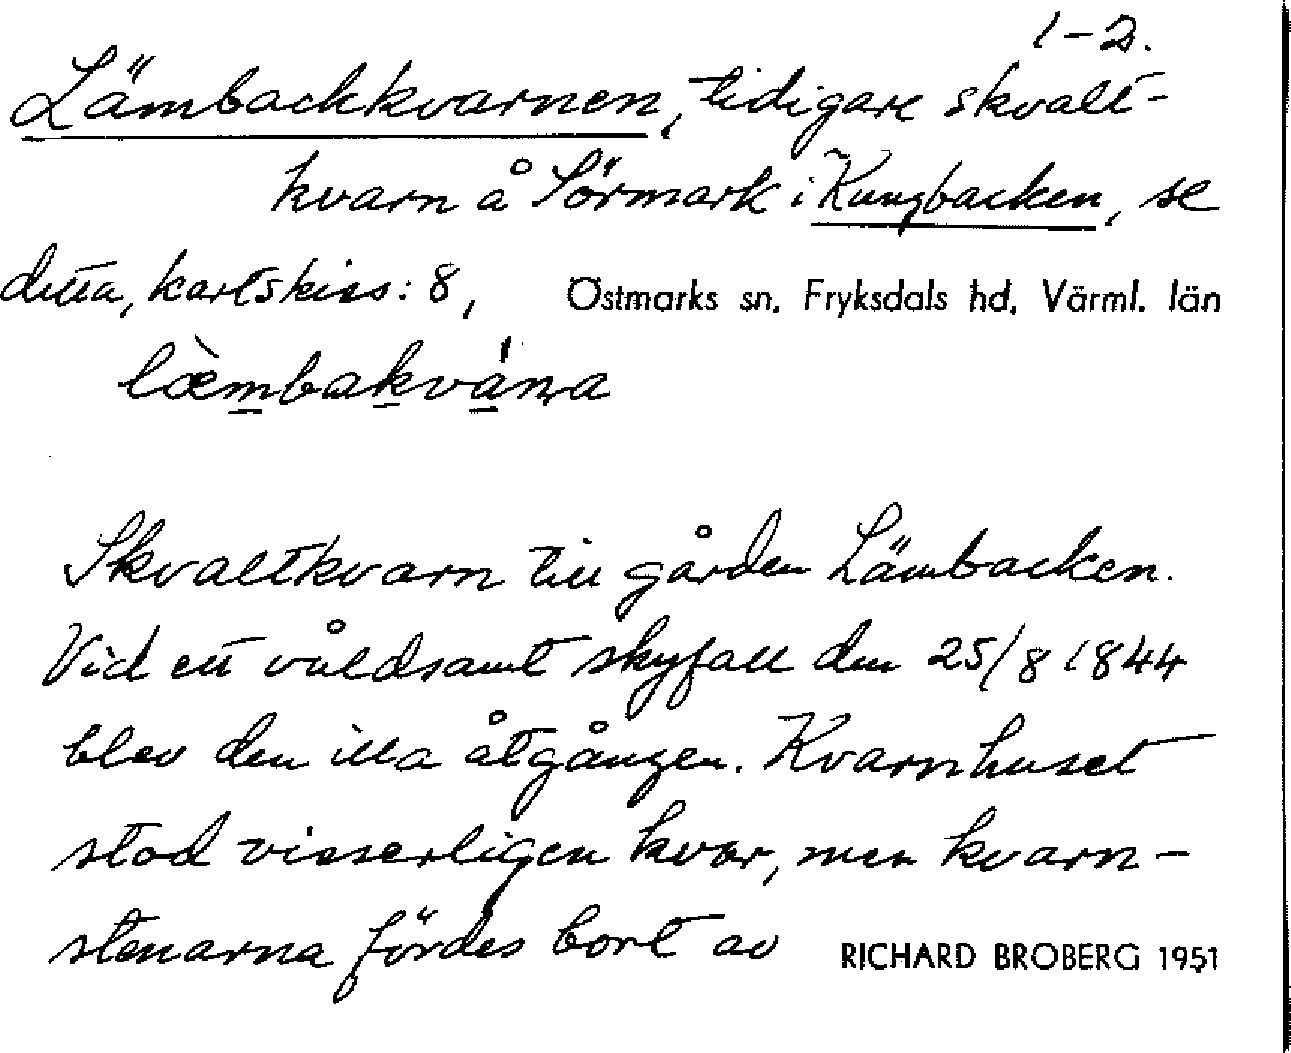 1-2.
Lämbackkvarnen, tidigare skvalt-
kvarn å Sörmark i Kungbacken, se
detta, kartskiss: 8, Östmarks sn. Fryksdals hd. Värml. län
lœ̀mbakvána
Skvaltkvarn till gården Lämbacken.
Vid ett våldsamt skyfall den 25/8 1844
blev den illa åtgången. Kvarnhuset
stod visserligen kvar, men kvarn-
stenarna fördes bort av RICHARD BROBERG 1951